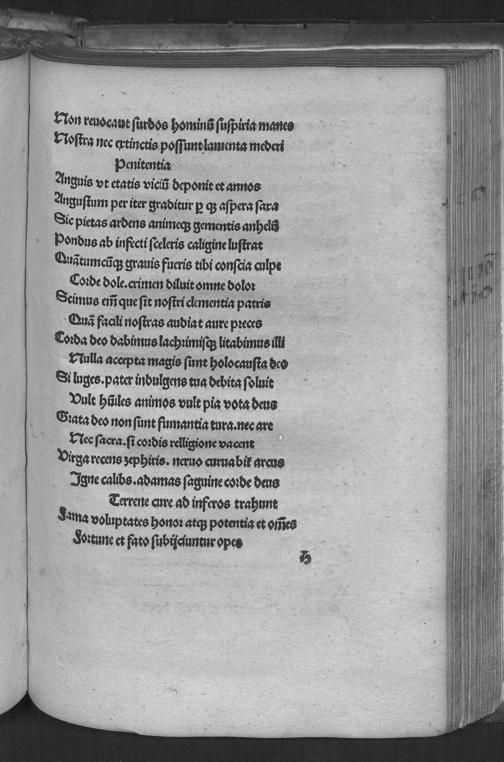 Non reuocaut surdos hominũ suspiria manes
Nostra nec extinctis possunt lamenta mederi
Penitentia
Anguis vt etatis viciũ deponit et annos
Angustum per iter graditur ꝑ ꝗꝫ aspera saxa
Sic pietas ardens animeqꝫ gementis anhelꝰ
Pondus ab infecti sceleris caligine lustrat
Quãtumcũqꝫ grauis fueris tibi conscia culpe
Corde dole. crimen diluit omne dolor
Scimus em̃ que sit nostri clementia patris
Quã facili nostras audiat aure preces
Corda deo dabimus lachrimisqꝫ litabimus illi
Nulla accepta magis sunt holocausta deo
Si luges. pater indulgens tua debita soluit
Vult hũiles animos vult pia vota deus
Grata deo non sunt fumantia tura. nec are
Nec sacra. si cordis relligione vacent
Virga recens zephiris. neruo curuabiꝶ arcus
Igne calibs. adamas saguine corde deus
Terrene cure ad inferos trahunt
Fama voluptates honor atqꝫ potentia et om̃es
Fortune et fato subijciuntur opes